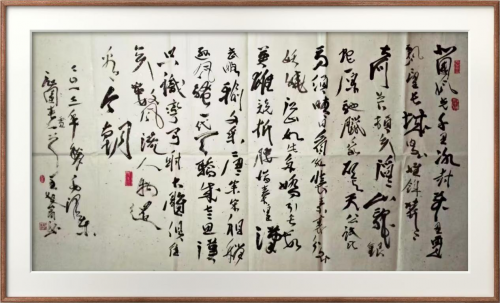 北国风光千里冰封万里雪
飘望长城内外惟余莽莽
大河上下顿失滔滔山舞银
蛇原驰蜡象欲与天公试比
高须晴日看红装素裹分外
妖娆江山如此多娇引无数
英雄竞折腰惜秦皇汉
武略输文采唐宗宋祖稍
逊风骚一代天骄成吉思汗
只识弯弓射大雕俱往
矣数风流人物还
看今朝
二〇一三年 毛泽东
沁园春雪